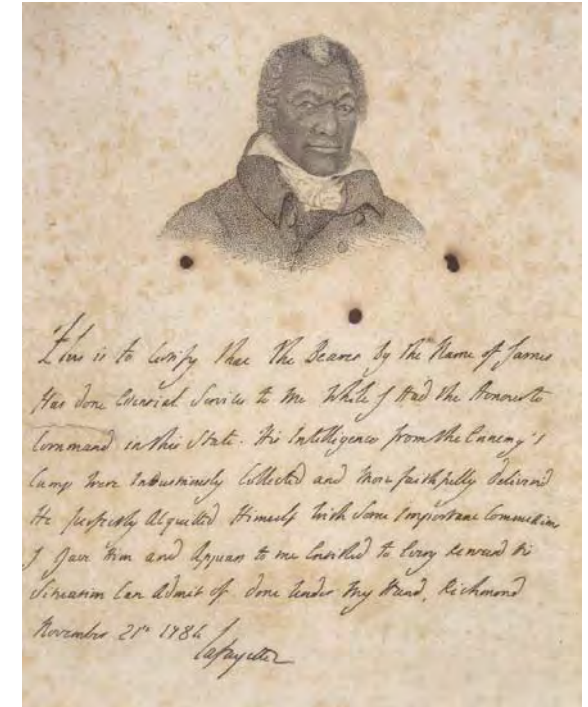 This is to Certify that the Bearer by the Name of James
Has done Essential Services to me While I Had the Honour to
Command in this State. His Intelligences from the Ennemy's
Camp were Industriously Collected and More faithfully deliver'd
He perfectly Acquitted Himself with Some Important Commissions
I Gave Him and Appears to me Entitled to Every Reward his
Situation Can Admit of. Done Under My Hand, Richmond
November 21st 1784
Lafayette